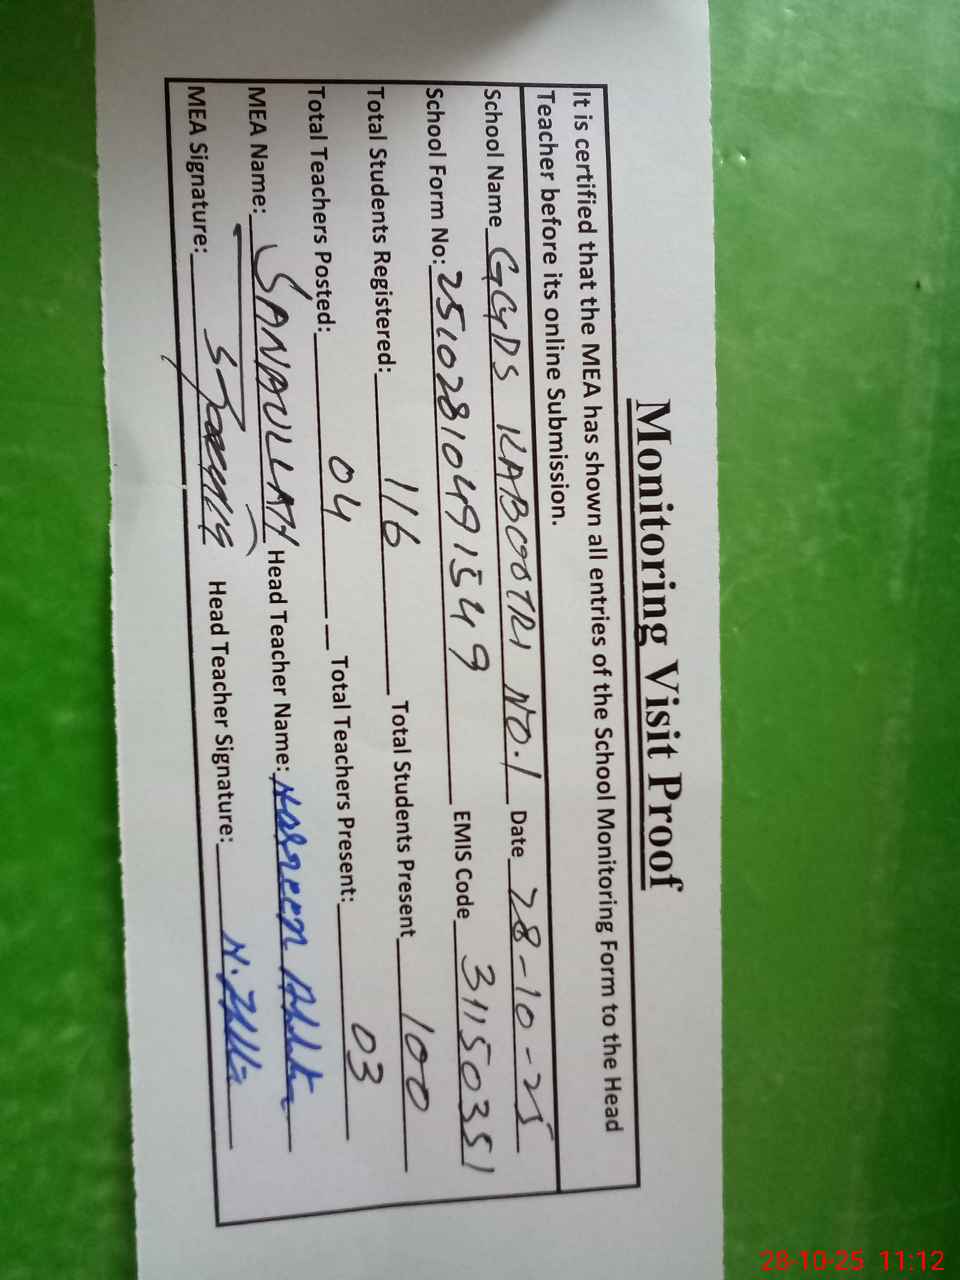 Monitoring Visit Proof
It is certified that the MEA has shown all entries of the School Monitoring Form to the Head
Teacher before its online Submission.
School Name GGPS KABOOTRI NO.1 Date 28-10-25
School Form No: 251028104915549 EMIS Code 31150351
Total Students Registered: 116 Total Students Present 100
Total Teachers Posted: 04 Total Teachers Present: 03
MEA Name: SANAULLAH Head Teacher Name: Nasreen Akhtar
MEA Signature: Head Teacher Signature:
28-10-25 11:12